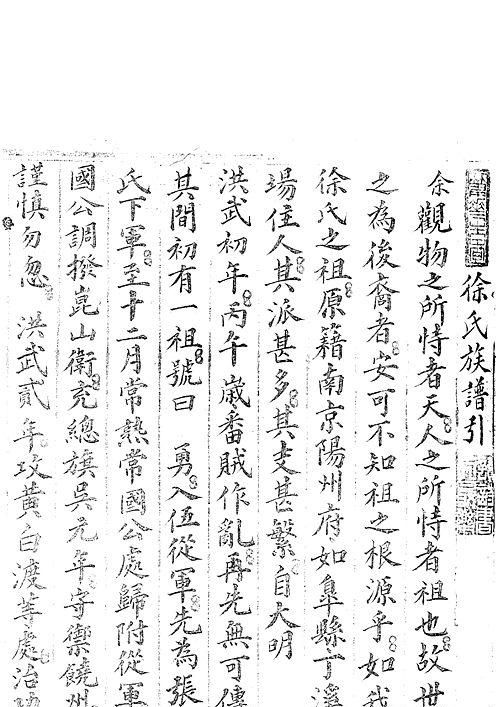 徐氏族譜引
余觀物之所恃者天人之所恃者祖也故世
之為後裔者安可不知祖之根源乎如我
徐氏之祖原籍南京陽州府如皐縣丁溪
場住人其派甚多其支甚繁自大明
洪武初年丙午歲番賊作亂再先無可傳
其間初有一祖號曰 勇入伍從軍先為張
氏下軍至十二月常熟常國公處歸附從軍
國公調撥崑山衛充總旗吳元年守禦饒州
謹慎勿忽 洪武貳年攻黃白渡等處治功